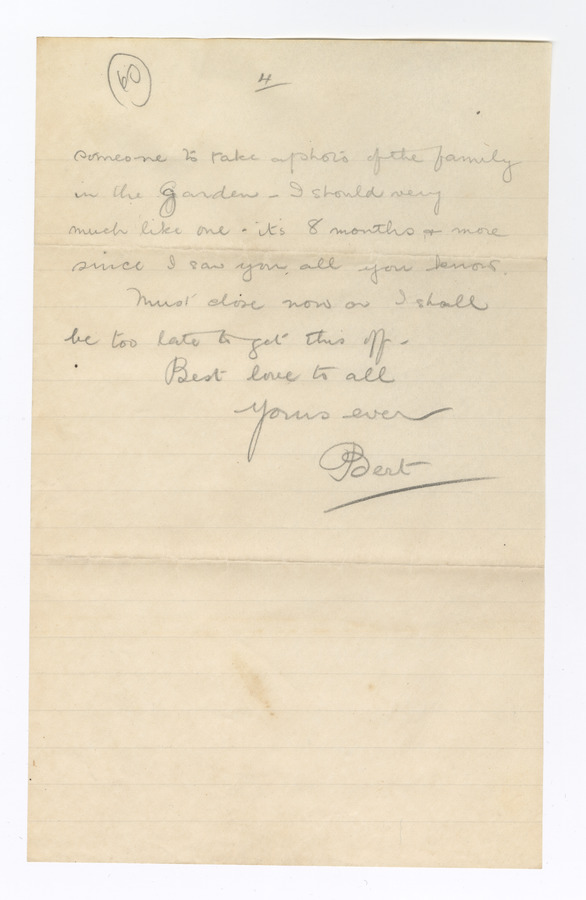 60
4
someone to take a photo of the family
in the Garden - I should very
much like one - it's 8 months & more
since I saw you all you know.
Must close now or I shall
be too late to get this off -
Best love to all
Yours ever
Bert